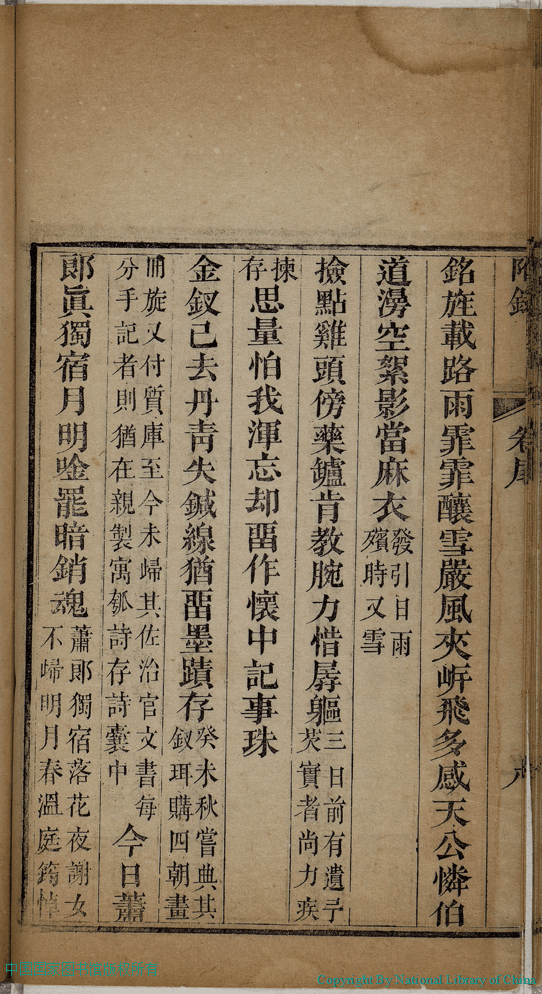 附錄
卷尾
銘旌載路雨霏霏釀雪嚴風夾飛多感天公憐伯
道滂空絮影當麻衣
發引日雨
殯時又雪
撿點雞頭傍藥鑪肯教腕力惜孱軀
三日前有遺予
芡實者尚力疾
揀
存
思量怕我渾忘却畱作懷中記事珠
金釵已去丹靑失鍼線猶畱墨蹟存
癸未秋嘗典其
釵珥購四朝畫
冊旋又付質庫至今未歸其佐治官文書每
分手記者則猶在親製寓詩存詩囊中
今日蕭
郞眞獨宿月明唫罷暗銷魂
蕭郞獨宿落花夜謝女
不歸明月春溫庭筠悼
Copyright By National Library of China